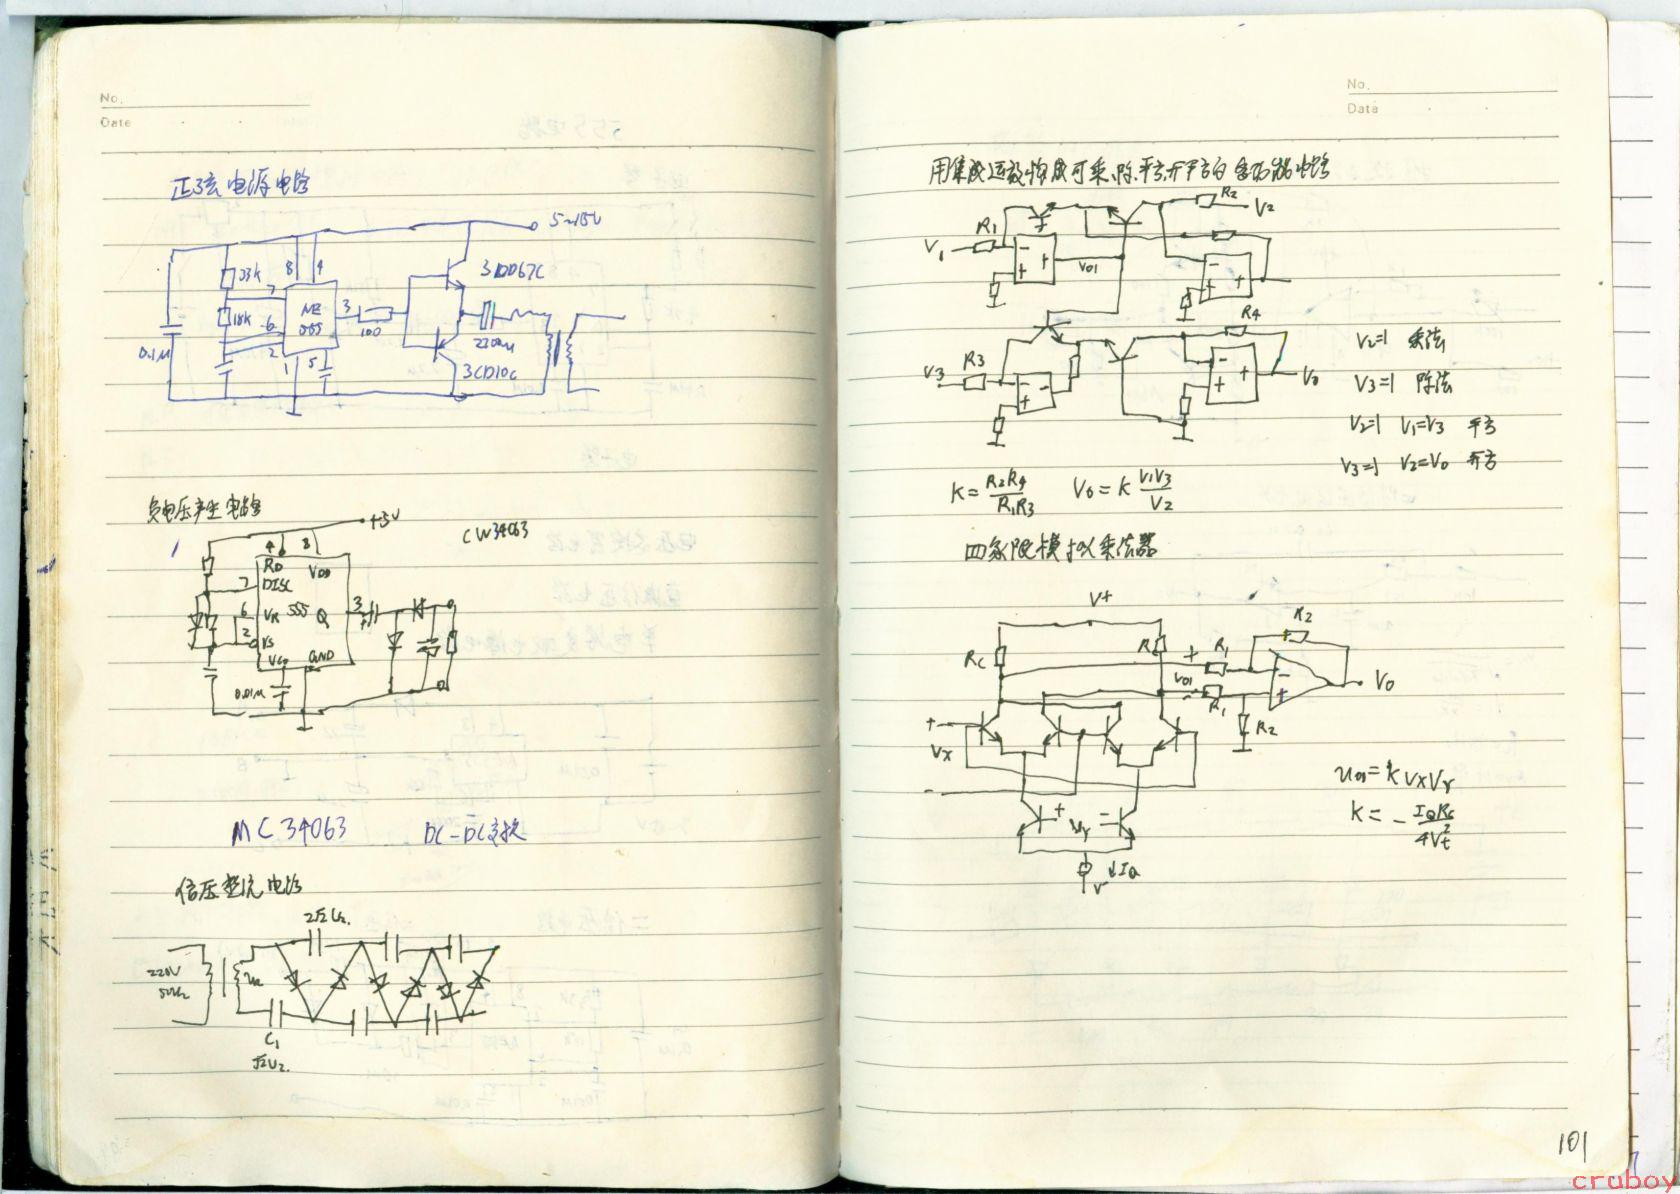 No.
Date
正弦电源电路
5~15V
33k
8
4
7
3DD67C
NE
555
3
18k
6
100
2
220μ
0.1μ
1
5
3CD10C
负电压产生电路
+5V
CW34063
4
8
RD
VDD
7
DISC
6
VR
555
Q
3
2
VS
VC
GND
0.01μ
MC34063
DC-DC变换
倍压整流电路
2√2U2.
220V
50Hz
C1
√2U2.
No.
Date
用集成运放构成可乘、除、平方、开平方的多功能电路
R2
V2
R1
V1
-
+
V01
-
+
R4
R3
V3
-
+
-
+
V0
V2=1 乘法
V3=1 除法
V2=1 V1=V3 平方
V3=1 V2=V0 开方
K=R2R4/R1R3
V0=K V1V3/V2
四象限模拟乘法器
V+
R2
RC
R
+
R1
V01
-
+
V0
R1
R2
+
VX
-
+
VY
-
IQ
V-
U01=KVXVY
K=-IQRC/4Vt²
101
cruboy